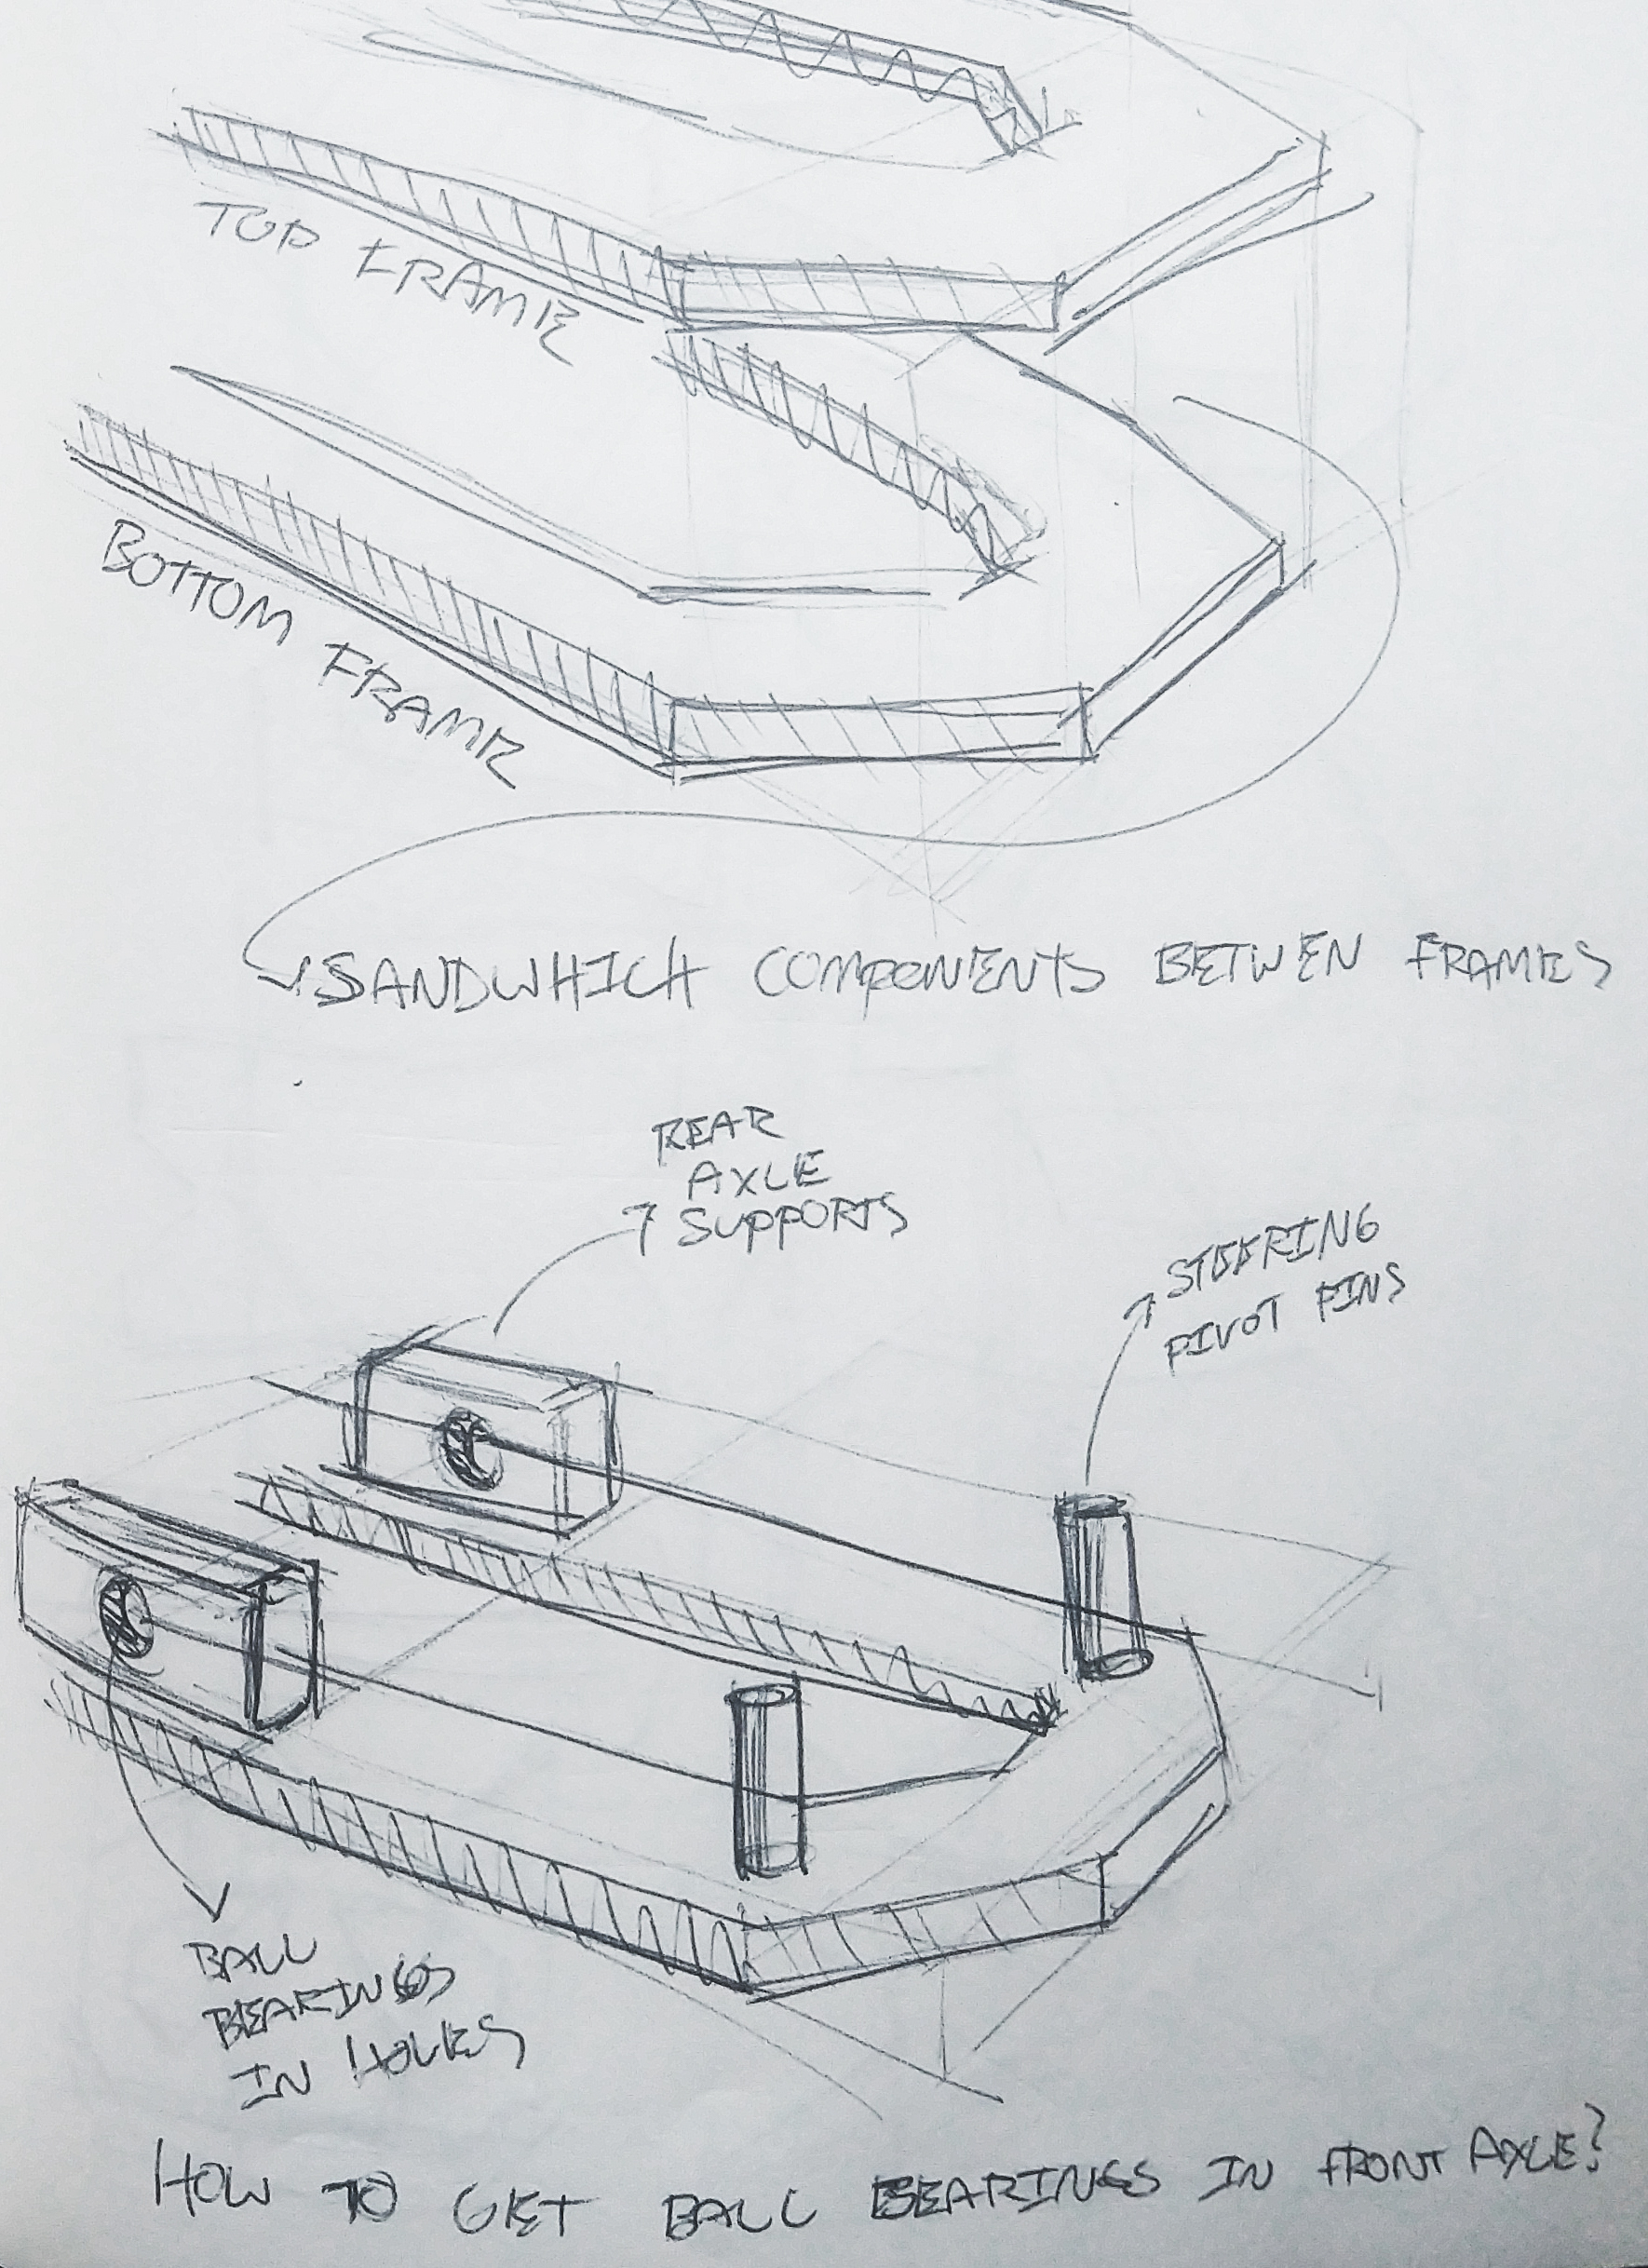 TOP FRAME
BOTTOM FRAME
SANDWHICH COMPONENTS BETWEN FRAMES
REAR
AXLE
SUPPORTS
STEERING
PIVOT PINS
BALL
BEARINGS
IN HOLES
HOW TO GET BALL BEARINGS IN FRONT AXLE?